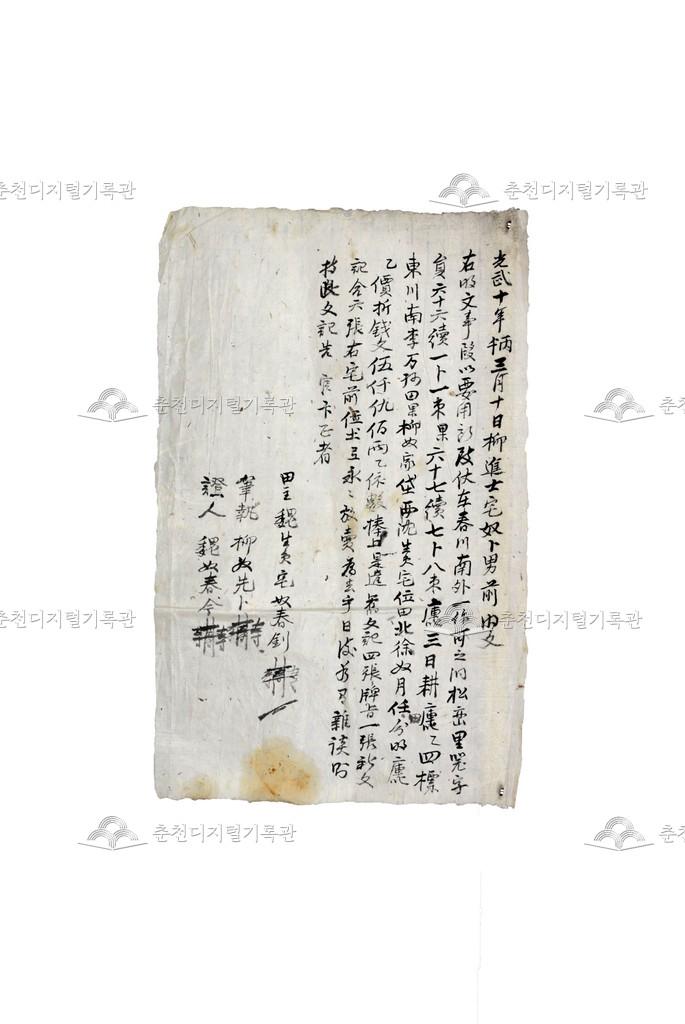 光武十年丙三月十日柳進士宅奴卜男前明文
右明文事段以要用所致伏在春川南外一作所之內松亭里累字
負六十六續一卜一束果六十七續七卜八束庫三日耕庫乙四標
東川南李万孫田果柳奴家垈西沈生員宅位田北徐奴月任田分明庫
乙價折錢文伍仟仇佰兩乙依數捧上是遣舊文記四張牌旨一張新文
記合六張右宅前 永永放賣爲去乎日後若有雜談則
持此文記告官卞正者
田主魏生員宅奴春釗
筆執柳奴先卜
證人魏奴春今
춘천디지털기록관
춘천디지털기록관
춘천디지털기록관
춘천디지털기록관
춘천디지털기록관
춘천디지털기록관